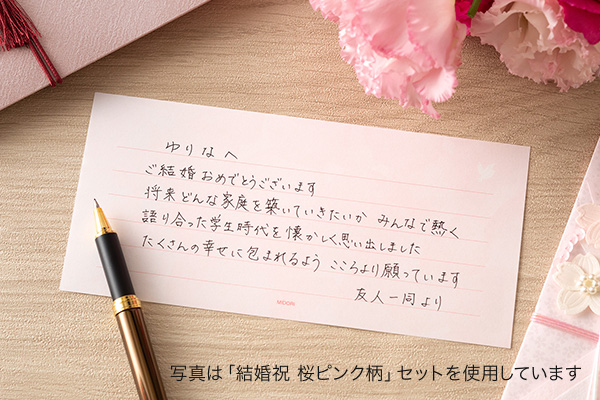 ゆりなへ
ご結婚おめでとうございます
将来どんな家庭を築いていきたいか みんなで熱く
語り合った学生時代を懐かしく思い出しました
たくさんの幸せに包まれるよう こころより願っています
友人一同より
MIDORI
写真は「結婚祝 桜ピンク柄」セットを使用しています